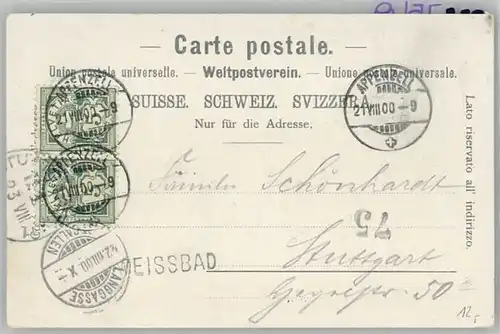 — Carte postale. —
Union postale universelle. — Weltpostverein. — Unione postale universale.
SUISSE. SCHWEIZ. SVIZZERA.
Nur für die Adresse.
Lato riservato all' indirizzo.
APPENZELL
21 VIII 00 – 9
APPENZELL
21 VIII 00 – 9
APPENZELL
21 VIII 00 – 9
Schönhardt
75
Stuttgart
50
EISSBAD
LANGGASSE
GALLEN
VIII 00
12.-